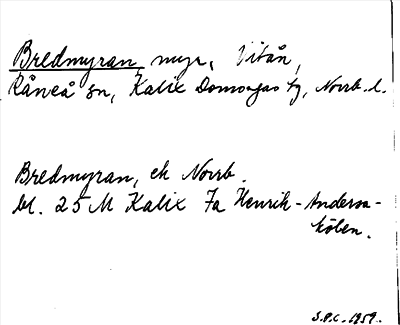 Bredmyran, myr, Vitån,
Råneå sn, Kalix Domsagas tg, Norrb. l.
Bredmyran, ek Norrb.
bl. 25 M Kalix Fa Henrik-Andersa-
kölen.
S.P.C. 1959.